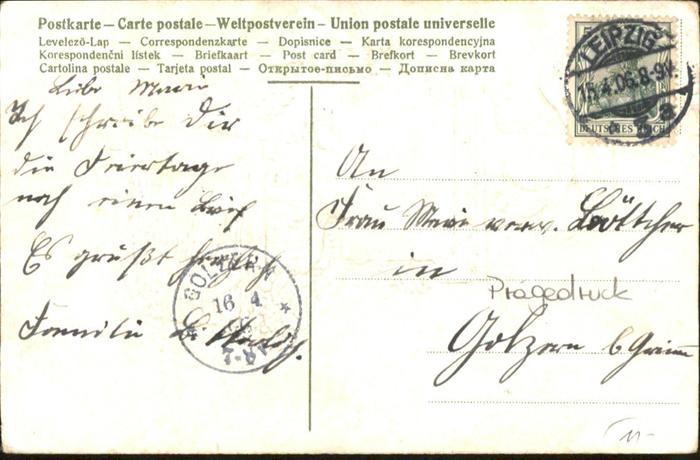 Postkarte – Carte postale – Weltpostverein – Union postale universelle
Levelező-Lap — Correspondenzkarte — Dopisnice — Karta korespondencyjna
Korespondenční lístek — Briefkaart — Post card — Brefkort — Brevkort
Cartolina postale — Tarjeta postal — Открытое-письмо — Дописна карта
LEIPZIG
15.4.06.8-9N.
DEUTSCHES REICH
Liebe
Ich schreibe Dir
die Feiertage
noch einen Brief
Es grüßt herzl.
Familie
GOLZERN
16 4
7-8
An
Frau verw. Böttcher
in
Prägedruck
Golzern b Grimma